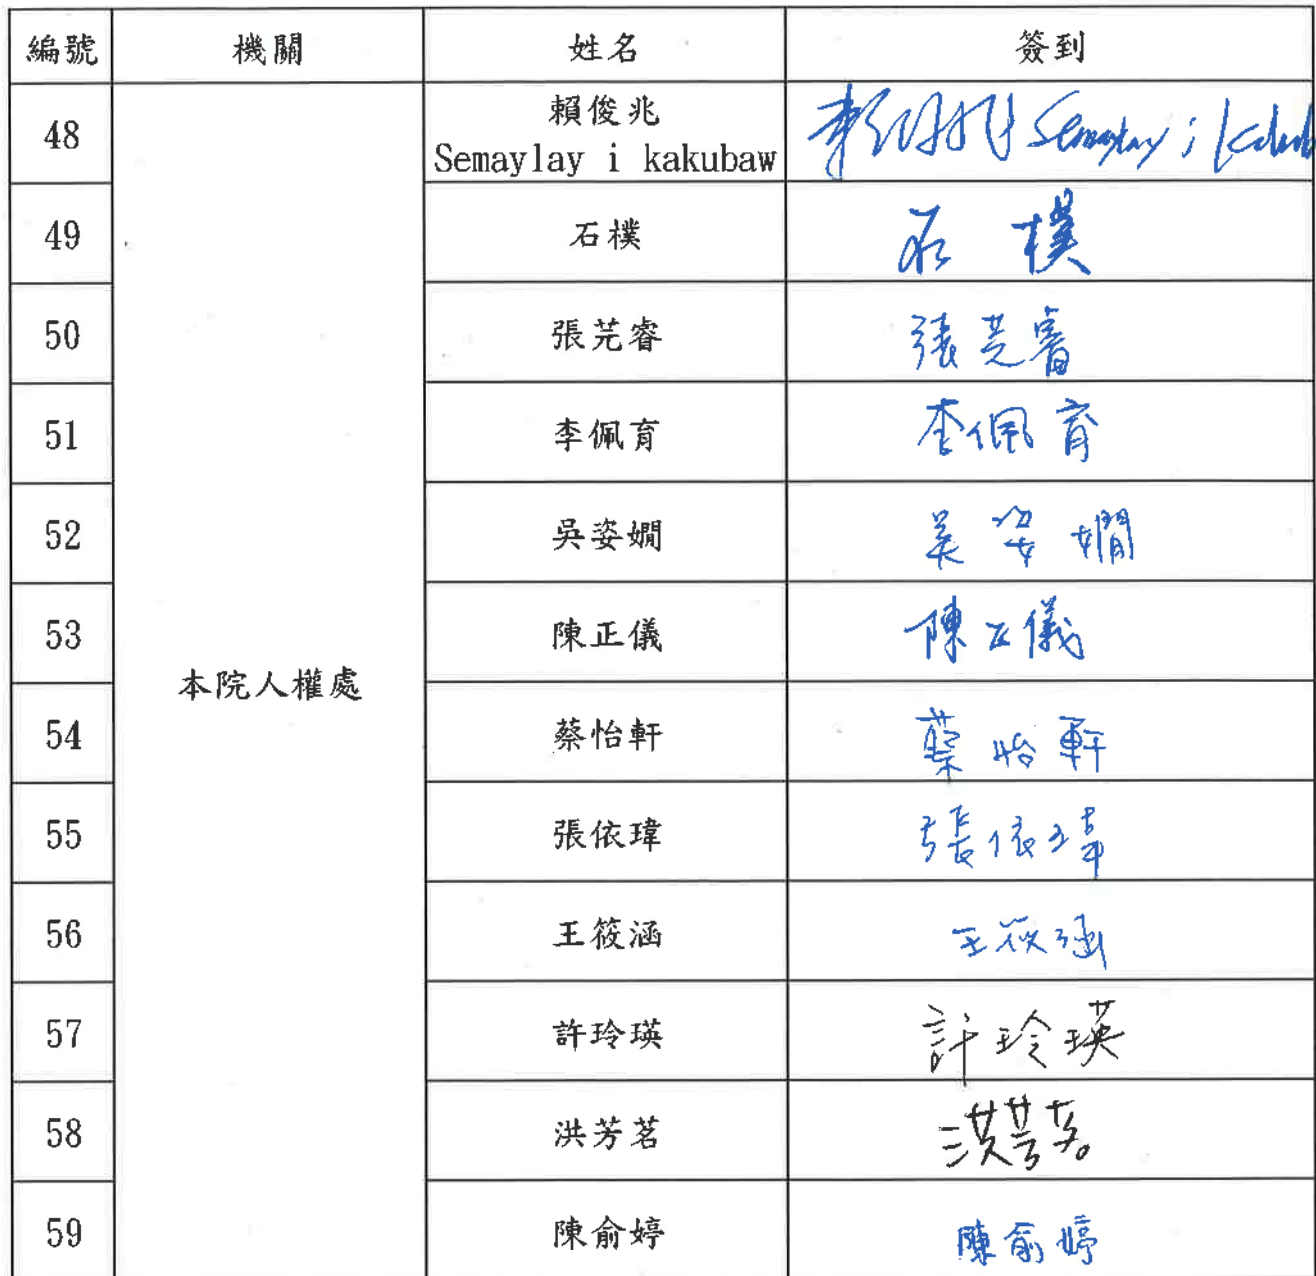 編號 機關 姓名 簽到
48 賴俊兆 Semaylay i
Semaylay i kakubaw
49 石樸 石樸
50 張芫睿 張芫睿
51 李佩育 李佩育
52 吳姿嫺 吳姿嫺
53 陳正儀 陳正儀
本院人權處
54 蔡怡軒 蔡怡軒
55 張依瑋 張依瑋
56 王筱涵 王筱涵
57 許玲瑛 許玲瑛
58 洪芳茗 洪芳茗
59 陳俞婷 陳俞婷